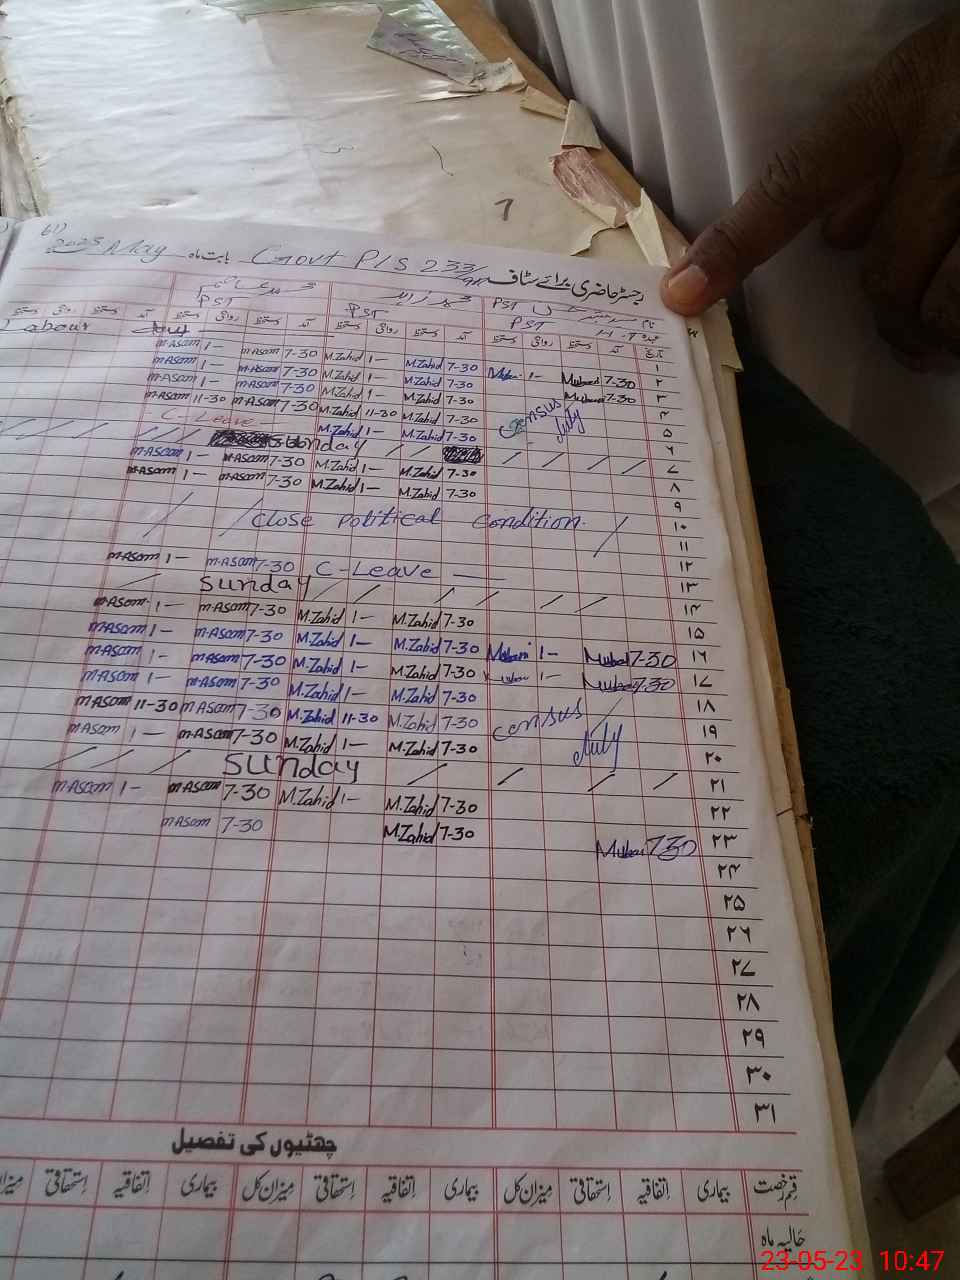 2023 May بابت ماہ Govt P/S 233/9R رجسٹر حاضری برائے سٹاف
محمد زاہد نام
PST PST PST H.T عہدہ
دستخط روانگی دستخط آمد دستخط روانگی دستخط آمد دستخط روانگی دستخط آمد تاریخ
Labour Day ۱
M Asam 1- M Asam 7-30 M.Zahid 1- M.Zahid 7-30 1- 7-30 ۲
M Asam 1- M Asam 7-30 M.Zahid 1- M.Zahid 7-30 7-30 ۳
M Asam 1- M Asam 7-30 M.Zahid 1- M.Zahid 7-30 census duty ۴
M Asam 11-30 M Asam 7-30 M.Zahid 11-30 M.Zahid 7-30 ۵
C-Leave M.Zahid 1- M.Zahid 7-30 ۶
Sunday ۷
M Asam 1- M Asam 7-30 M.Zahid 1- M.Zahid 7-30 ۸
M Asam 1- M Asam 7-30 M.Zahid 1- M.Zahid 7-30 ۹
Close Political Condition. ۱۰
۱۱
۱۲
M-Asam 1- M-Asam 7-30 C-Leave ۱۳
Sunday ۱۴
M-Asam 1- M-Asam 7-30 M.Zahid 1- M.Zahid 7-30 ۱۵
M-Asam 1- M-Asam 7-30 M.Zahid 1- M.Zahid 7-30 1- 7-30 ۱۶
M-Asam 1- M-Asam 7-30 M.Zahid 1- M.Zahid 7-30 1- 7-30 ۱۷
M-Asam 1- M-Asam 7-30 M.Zahid 1- M.Zahid 7-30 census duty ۱۸
M-Asam 11-30 M-Asam 7-30 M.Zahid 11-30 M.Zahid 7-30 ۱۹
M-Asam 1- M-Asam 7-30 M.Zahid 1- M.Zahid 7-30 ۲۰
Sunday ۲۱
M-Asam 1- M-Asam 7-30 M.Zahid 1- M.Zahid 7-30 ۲۲
M-Asam 7-30 M.Zahid 7-30 7-30 ۲۳
۲۴
۲۵
۲۶
۲۷
۲۸
۲۹
۳۰
۳۱
چھٹیوں کی تفصیل
قسم رخصت بیماری اتفاقیہ استحقاقی میزان کل بیماری اتفاقیہ استحقاقی میزان کل بیماری اتفاقیہ استحقاقی میزان
حالیہ ماہ
23-05-23 10:47